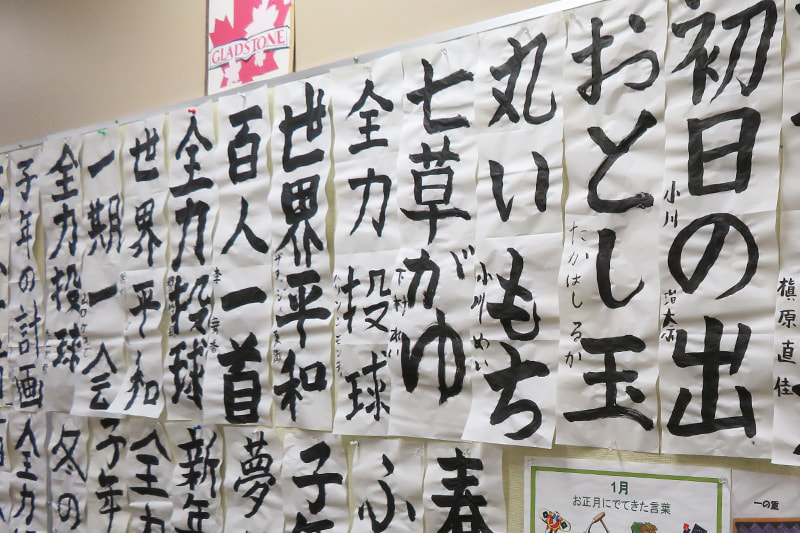 GLADSTONE
初日の出
小川
おとし玉
たかはしるか
丸いもち
小川めい
七草がゆ
下村
全力投球
世界平和
百人一首
全力投球
世界平和
一期一会
全力投球
子年の計画
槇原直佳
春
ふ
子年
夢
新年
全力
子年
冬の
全力
1月
お正月にでてきた言葉
一の重